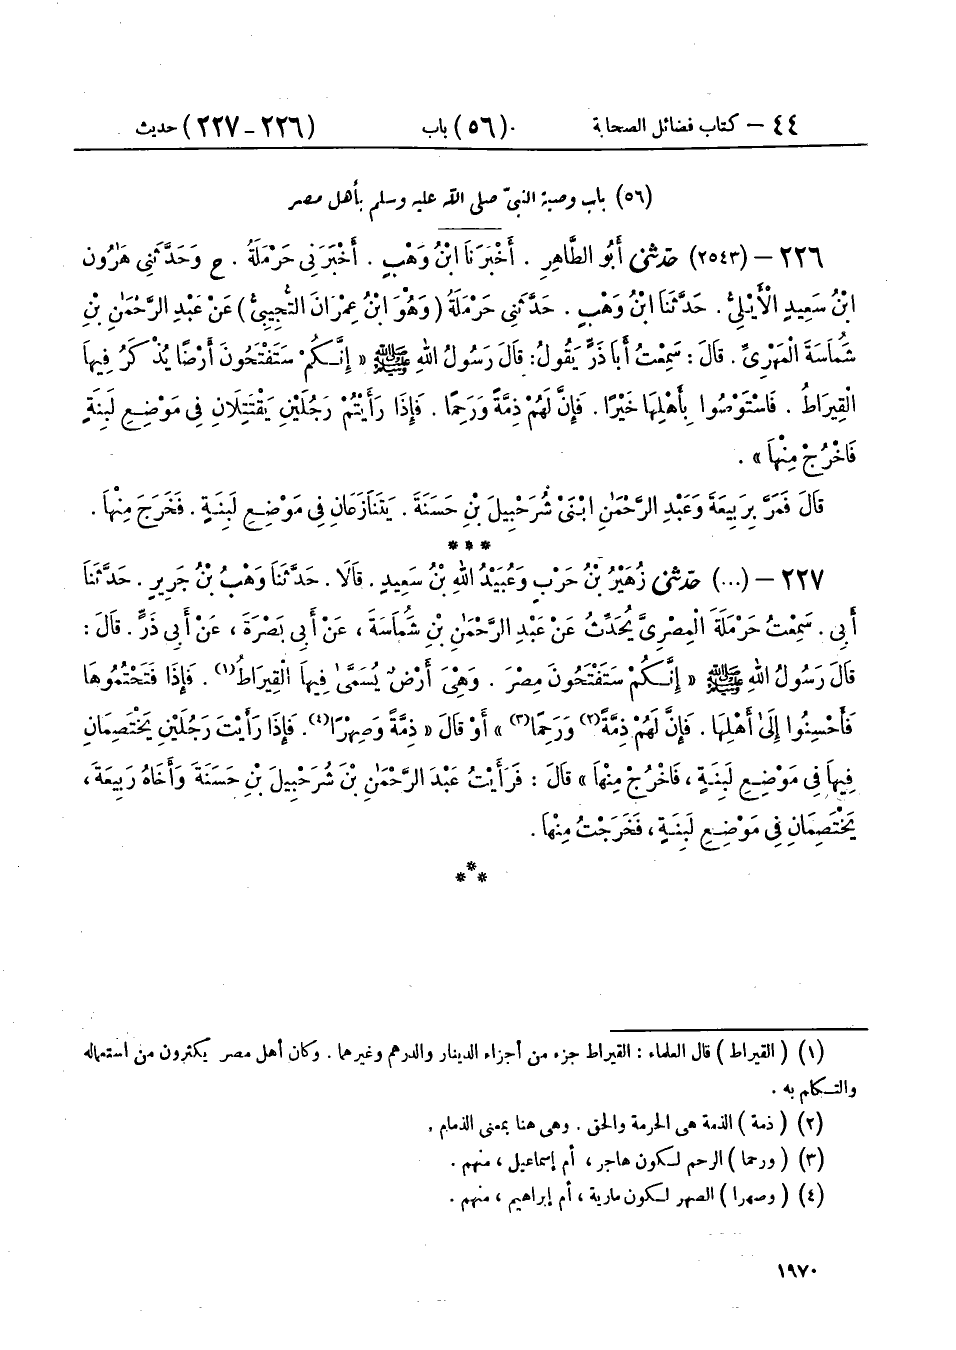 ٤٤ – كتاب فضائل الصحابة (٥٦) باب (٢٢٦ – ٢٢٧) حديث
(٥٦) باب وصية النبيّ صلى الله عليه وسلم بأهل مصر
٢٢٦ – (٢٥٤٣) حَدَّثَنِي أَبُو الطَّاهِرِ . أَخْبَرَنَا ابْنُ وَهْبٍ . أَخْبَرَنِي حَرْمَلَةُ . ح وَحَدَّثَنِي هَٰرُونُ
ابْنُ سَعِيدٍ الْأَيْلِيُّ . حَدَّثَنَا ابْنُ وَهْبٍ . حَدَّثَنِي حَرْمَلَةُ ( وَهُوَ ابْنُ عِمْرَانَ التُّجِيبِيُّ ) عَنْ عَبْدِ الرَّحْمَٰنِ بْنِ
شُمَاسَةَ الْمَهْرِيِّ . قَالَ : سَمِعْتُ أَبَا ذَرٍّ يَقُولُ : قَالَ رَسُولُ اللهِ ﷺ « إِنَّكُمْ سَتَفْتَحُونَ أَرْضًا يُذْكَرُ فِيهَا
الْقِيرَاطُ . فَاسْتَوْصُوا بِأَهْلِهَا خَيْرًا . فَإِنَّ لَهُمْ ذِمَّةً وَرَحِمًا . فَإِذَا رَأَيْتُمْ رَجُلَيْنِ يَقْتَتِلَانِ فِي مَوْضِعِ لَبِنَةٍ
فَاخْرُجْ مِنْهَا » .
قَالَ فَمَرَّ بِرَبِيعَةَ وَعَبْدِ الرَّحْمَٰنِ ابْنَيْ شُرَحْبِيلَ بْنِ حَسَنَةَ . يَتَنَازَعَانِ فِي مَوْضِعِ لَبِنَةٍ . فَخَرَجَ مِنْهَا .
***
٢٢٧ – (...) حَدَّثَنِي زُهَيْرُ بْنُ حَرْبٍ وَعُبَيْدُ اللهِ بْنُ سَعِيدٍ . قَالَا . حَدَّثَنَا وَهْبُ بْنُ جَرِيرٍ . حَدَّثَنَا
أَبِي . سَمِعْتُ حَرْمَلَةَ الْمِصْرِيَّ يُحَدِّثُ عَنْ عَبْدِ الرَّحْمَٰنِ بْنِ شُمَاسَةَ ، عَنْ أَبِي بَصْرَةَ ، عَنْ أَبِي ذَرٍّ . قَالَ :
قَالَ رَسُولُ اللهِ ﷺ « إِنَّكُمْ سَتَفْتَحُونَ مِصْرَ . وَهِيَ أَرْضٌ يُسَمَّىٰ فِيهَا الْقِيرَاطُ(١) . فَإِذَا فَتَحْتُمُوهَا
فَأَحْسِنُوا إِلَىٰ أَهْلِهَا . فَإِنَّ لَهُمْ ذِمَّةً(٢) وَرَحِمًا(٣) » أَوْ قَالَ « ذِمَّةً وَصِهْرًا(٤). فَإِذَا رَأَيْتَ رَجُلَيْنِ يَخْتَصِمَانِ
فِيهَا فِي مَوْضِعِ لَبِنَةٍ ، فَاخْرُجْ مِنْهَا » قَالَ : فَرَأَيْتُ عَبْدَ الرَّحْمَٰنِ بْنَ شُرَحْبِيلَ بْنِ حَسَنَةَ وَأَخَاهُ رَبِيعَةَ ،
يَخْتَصِمَانِ فِي مَوْضِعِ لَبِنَةٍ ، فَخَرَجْتُ مِنْهَا .
***
(١) ( القيراط ) قال العلماء : القيراط جزء من أجزاء الدينار والدرهم وغيرهما . وكان أهل مصر يكثرون من استعماله
والتكلم به .
(٢) ( ذمة ) الذمة هى الحرمة والحق . وهى هنا بمعنى الذمام .
(٣) ( ورحما ) الرحم لكون هاجر ، أم إسماعيل ، منهم .
(٤) ( وصهرا ) الصهر لكون مارية ، أم إبراهيم ، منهم .
١٩٧٠